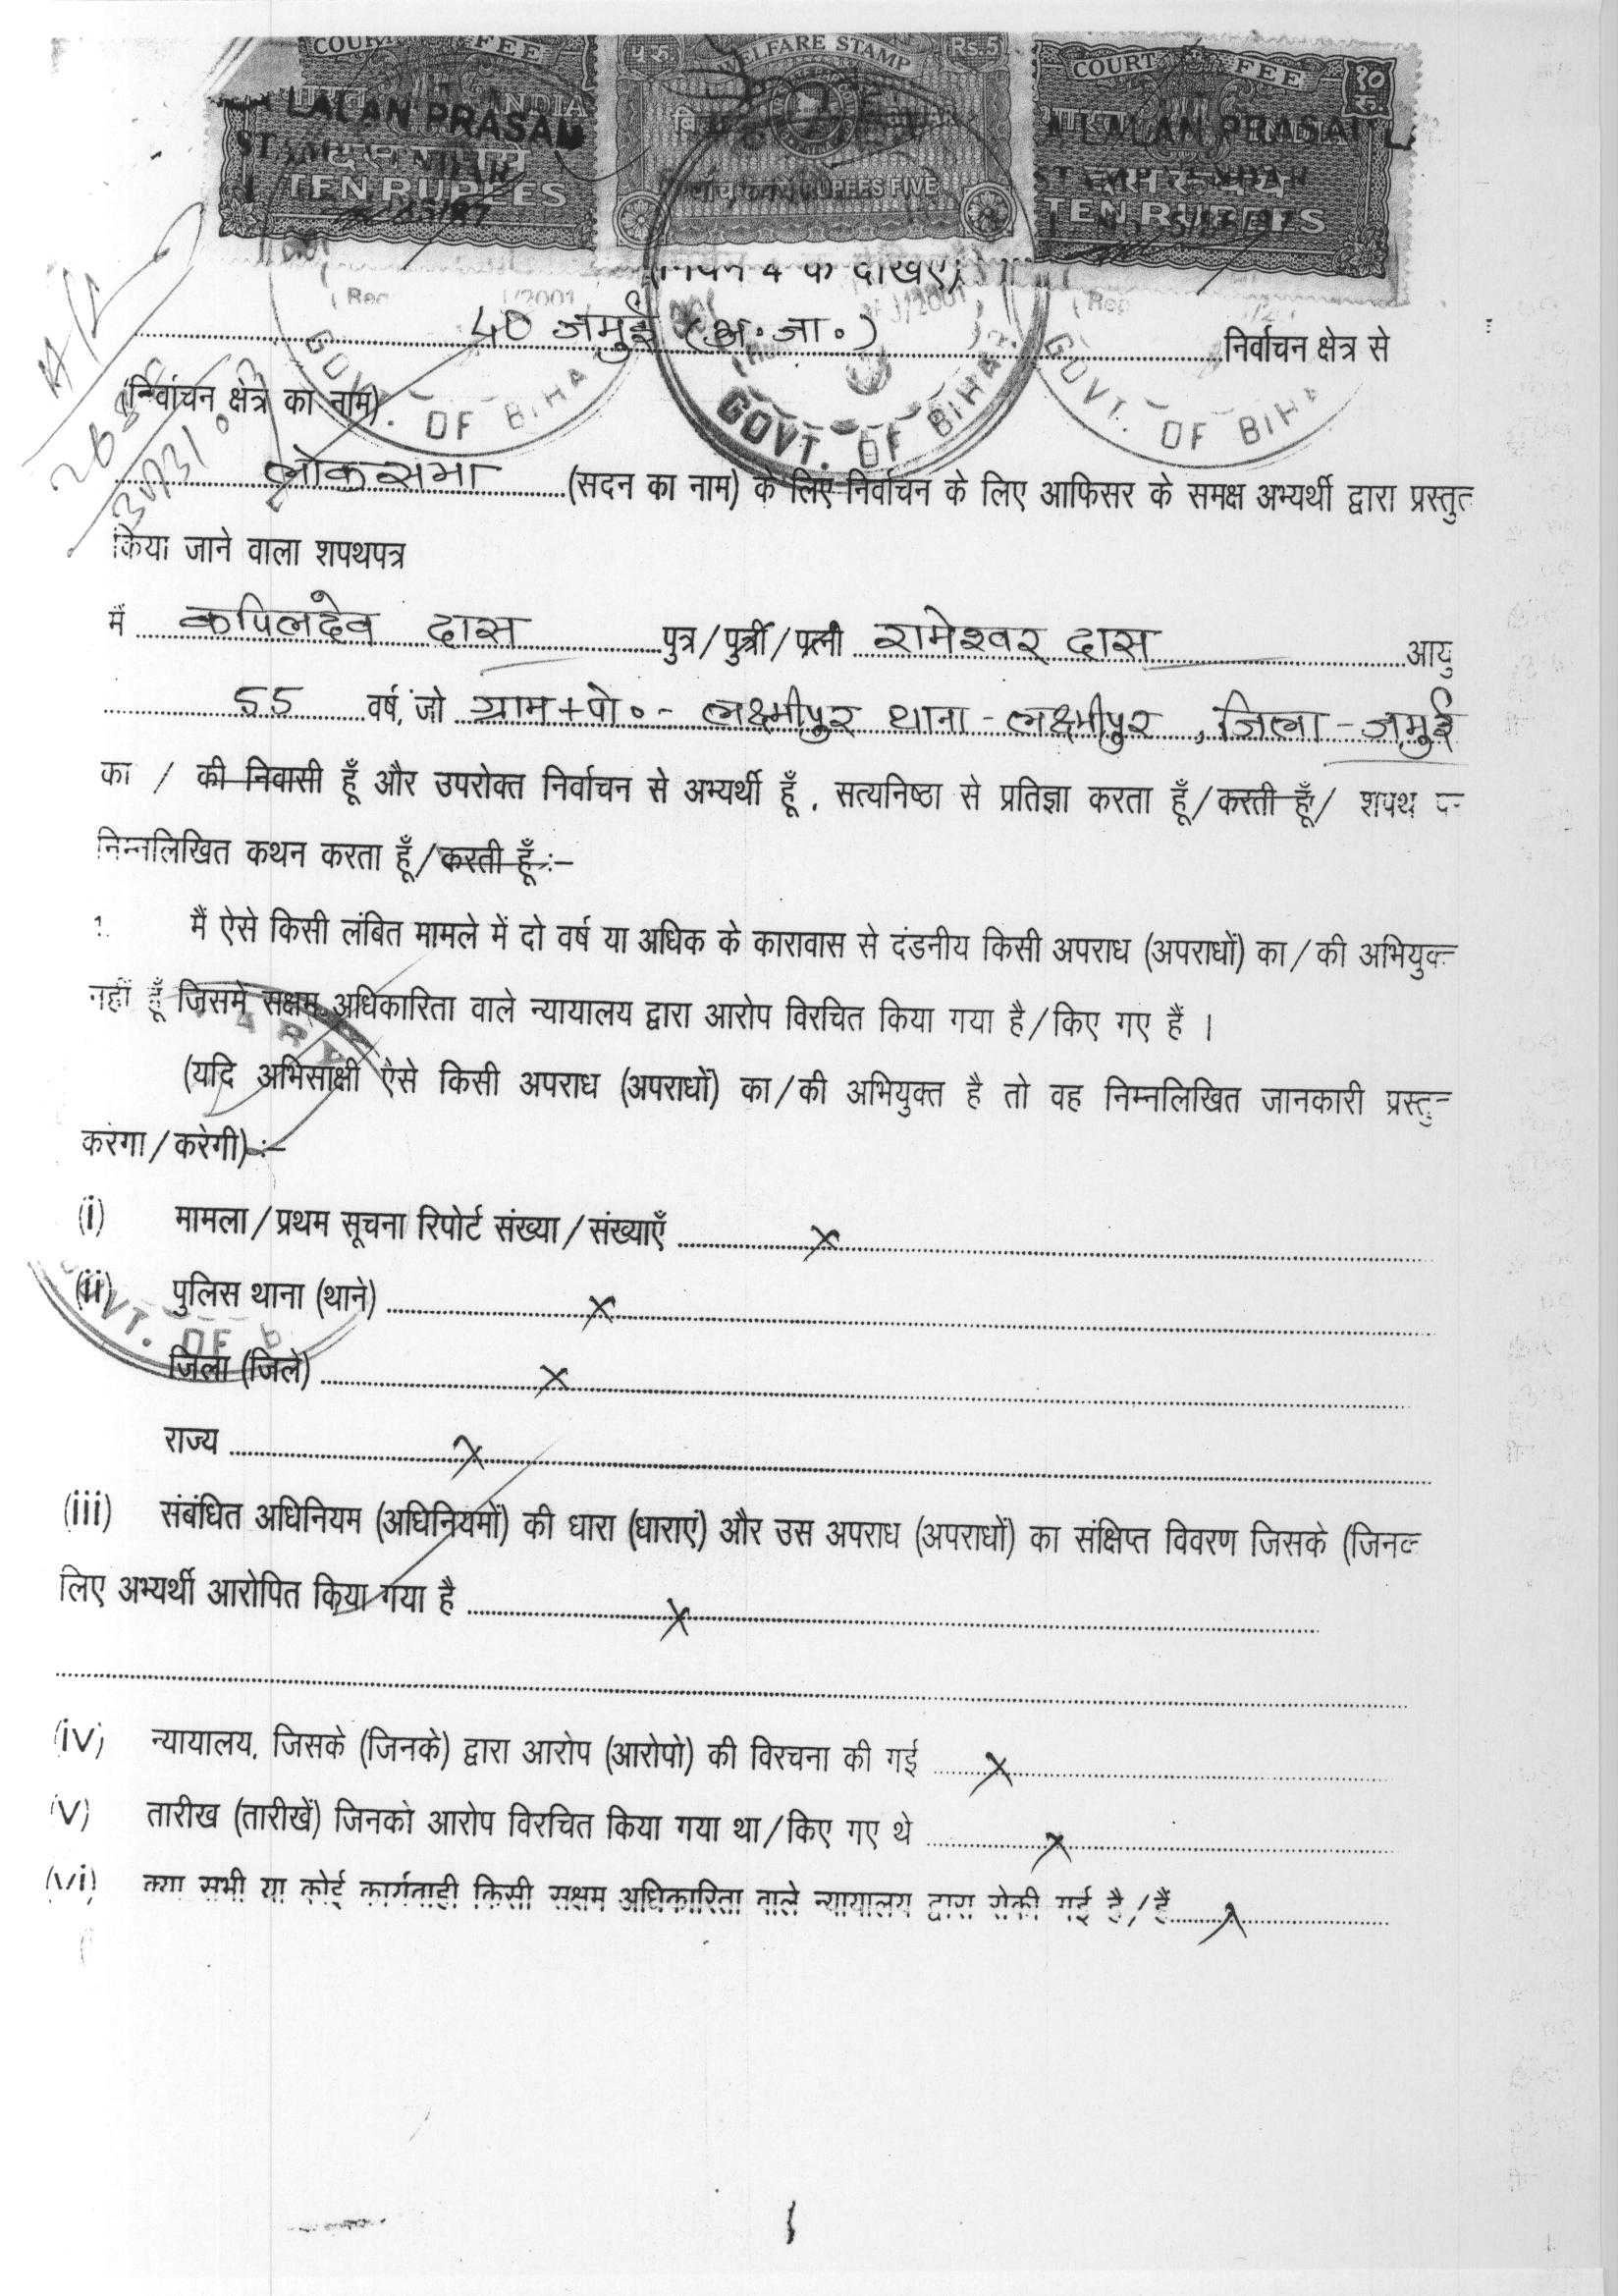 COURT FEE
WELFARE STAMP
Rs.5
COURT FEE
१० रु.
भारत INDIA
भारत INDIA
LALAN PRASAD
LALAN PRASAD
दस रुपये
TEN RUPEES
RUPEES FIVE
दस रुपये
TEN RUPEES
40 जमुई (अ॰ जा॰) निर्वाचन क्षेत्र से
(निर्वाचन क्षेत्र का नाम)
GOVT. OF BIHA
GOVT. OF BIHAR
GOVT. OF BIHA
लोकसभा (सदन का नाम) के लिए निर्वाचन के लिए आफिसर के समक्ष अभ्यर्थी द्वारा प्रस्तुत
किया जाने वाला शपथपत्र
मैं कपिलदेव दास पुत्र/पुत्री/पत्नी रामेश्वर दास आयु
55 वर्ष, जो ग्राम+पो॰- लक्ष्मीपुर थाना-लक्ष्मीपुर, जिला-जमुई
का / की निवासी हूँ और उपरोक्त निर्वाचन से अभ्यर्थी हूँ, सत्यनिष्ठा से प्रतिज्ञा करता हूँ/करती हूँ/ शपथ
निम्नलिखित कथन करता हूँ/करती हूँ:-
1. मैं ऐसे किसी लंबित मामले में दो वर्ष या अधिक के कारावास से दंडनीय किसी अपराध (अपराधों) का/की अभियुक्त
नहीं हूँ जिसमे सक्षम अधिकारिता वाले न्यायालय द्वारा आरोप विरचित किया गया है/किए गए हैं ।
(यदि अभिसाक्षी ऐसे किसी अपराध (अपराधों) का/की अभियुक्त है तो वह निम्नलिखित जानकारी प्रस्तुत
करेगा/करेगी):-
(i) मामला/प्रथम सूचना रिपोर्ट संख्या/संख्याएँ ×
(ii) पुलिस थाना (थाने) ×
जिला (जिले) ×
राज्य ×
(iii) संबंधित अधिनियम (अधिनियमों) की धारा (धाराएं) और उस अपराध (अपराधों) का संक्षिप्त विवरण जिसके (जिनके
लिए अभ्यर्थी आरोपित किया गया है ×
(iv) न्यायालय, जिसके (जिनके) द्वारा आरोप (आरोपो) की विरचना की गई ×
(v) तारीख (तारीखें) जिनको आरोप विरचित किया गया था/किए गए थे ×
(vi) क्या सभी या कोई कार्यवाही किसी सक्षम अधिकारिता वाले न्यायालय द्वारा रोकी गई है/हैं ×
1